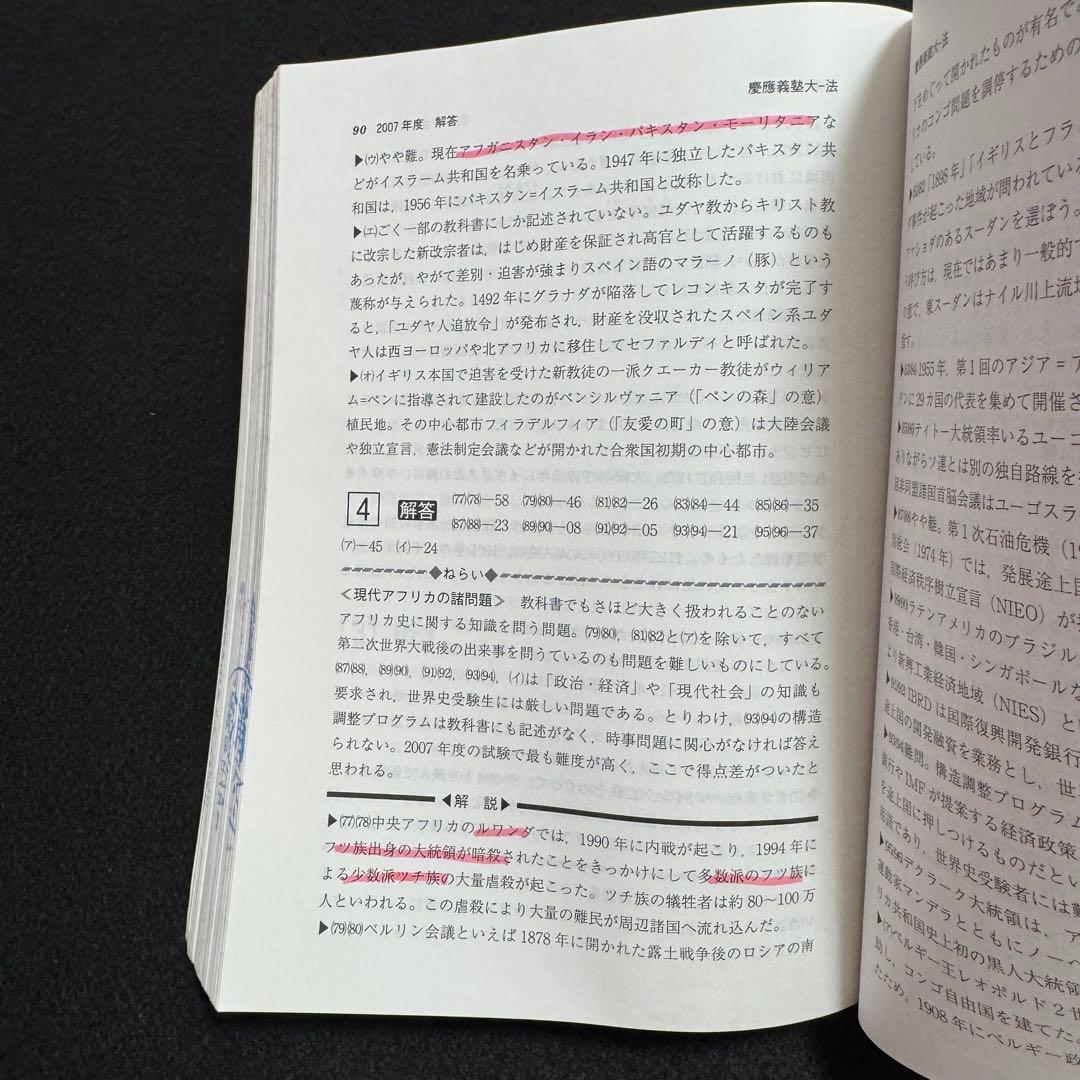 慶應義塾大-法
90 2007年度 解答
▶(ウ)やや難。現在アフガニスタン・イラン・パキスタン・モーリタニアな
どがイスラーム共和国を名乗っている。1947年に独立したパキスタン共
和国は，1956年にパキスタン=イスラーム共和国と改称した。
▶(エ)ごく一部の教科書にしか記述されていない。ユダヤ教からキリスト教
に改宗した新改宗者は，はじめ財産を保証され高官として活躍するものも
あったが，やがて差別・迫害が強まりスペイン語のマラーノ（豚）という
蔑称が与えられた。1492年にグラナダが陥落してレコンキスタが完了す
ると，「ユダヤ人追放令」が発布され，財産を没収されたスペイン系ユダ
ヤ人は西ヨーロッパや北アフリカに移住してセファルディと呼ばれた。
▶(オ)イギリス本国で迫害を受けた新教徒の一派クエーカー教徒がウィリア
ム=ペンに指導されて建設したのがペンシルヴァニア（「ペンの森」の意）
植民地。その中心都市フィラデルフィア（「友愛の町」の意）は大陸会議
や独立宣言，憲法制定会議などが開かれた合衆国初期の中心都市。
4 解答 (77)(78)—58 (79)(80)—46 (81)(82)—26 (83)(84)—44 (85)(86)—35
(87)(88)—23 (89)(90)—08 (91)(92)—05 (93)(94)—21 (95)(96)—37
(ア)—45 (イ)—24
◆ねらい◆
≪現代アフリカの諸問題≫ 教科書でもさほど大きく扱われることのない
アフリカ史に関する知識を問う問題。(79)(80)，(81)(82)と(ア)を除いて，すべて
第二次世界大戦後の出来事を問うているのも問題を難しいものにしている。
(87)(88)，(89)(90)，(91)(92)，(93)(94)，(イ)は「政治・経済」や「現代社会」の知識も
要求され，世界史受験生には厳しい問題である。とりわけ，(93)(94)の構造
調整プログラムは教科書にも記述がなく，時事問題に関心がなければ答え
られない。2007年度の試験で最も難度が高く，ここで得点差がついたと
思われる。
◀解 説▶
▶(77)(78)中央アフリカのルワンダでは，1990年に内戦が起こり，1994年に
フツ族出身の大統領が暗殺されたことをきっかけにして多数派のフツ族に
よる少数派ツチ族の大量虐殺が起こった。ツチ族の犠牲者は約80〜100万
人といわれる。この虐殺により大量の難民が周辺諸国へ流れ込んだ。
▶(79)(80)ベルリン会議といえば1878年に開かれた露土戦争後のロシアの南
慶應義塾大-法
下をめぐって開かれたものが有名で
のコンゴ問題を調停するための
している。
「1898年」「イギリスとフラ
事件が起こった地域が問われてい
ファショダのあるスーダンを選ぼう。
呼び方は，現在ではあまり一般的
の意で，東スーダンはナイル川上流
1955年，第1回のアジア＝ア
ダンに29カ国の代表を集めて開催
ティトー大統領率いるユーゴ
ありながらソ連とは別の独自路線を
同盟諸国首脳会議はユーゴスラ
やや難。第1次石油危機（1
総会（1974年）では，発展途上国
国際経済秩序樹立宣言（NIEO）が
ラテンアメリカのブラジル
香港・台湾・韓国・シンガポールな
より新興工業経済地域（NIES）と
IBRDは国際復興開発銀行
途上国の開発融資を業務とし，世
難問。構造調整プログラム
銀行やIMFが提案する経済政策
を途上国に押しつけるものだとい
用語であり，世界史受験者には難
デクラーク大統領は，ア
運動家マンデラとともにノーベ
リカ共和国史上初の黒人大統領
(ア)ベルギー王レオポルド2世
コンゴ自由国を建てた。
たため，1908年にベルギー政